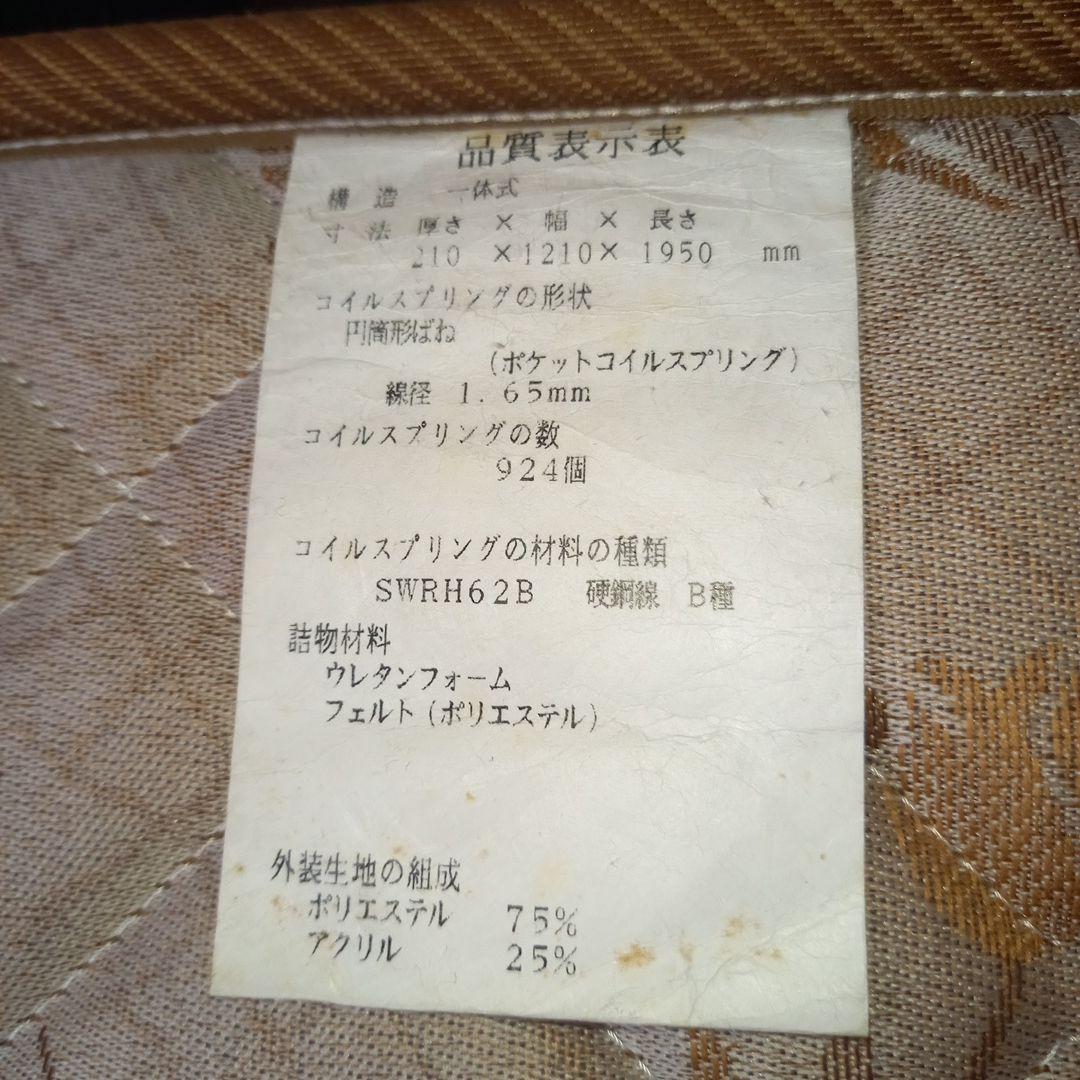 品質表示表
構 造 一体式
寸 法 厚さ × 幅 × 長さ
210 ×1210× 1950 mm
コイルスプリングの形状
円筒形ばね
(ポケットコイルスプリング)
線径 1.65mm
コイルスプリングの数
924個
コイルスプリングの材料の種類
SWRH62B 硬鋼線 B種
詰物材料
ウレタンフォーム
フェルト(ポリエステル)
外装生地の組成
ポリエステル 75%
アクリル 25%